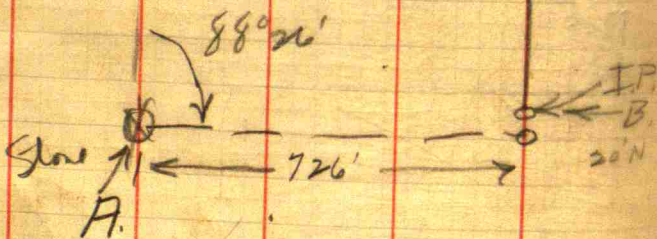 88°26'
I.P.
B.
20'N
Stone
726'
A.